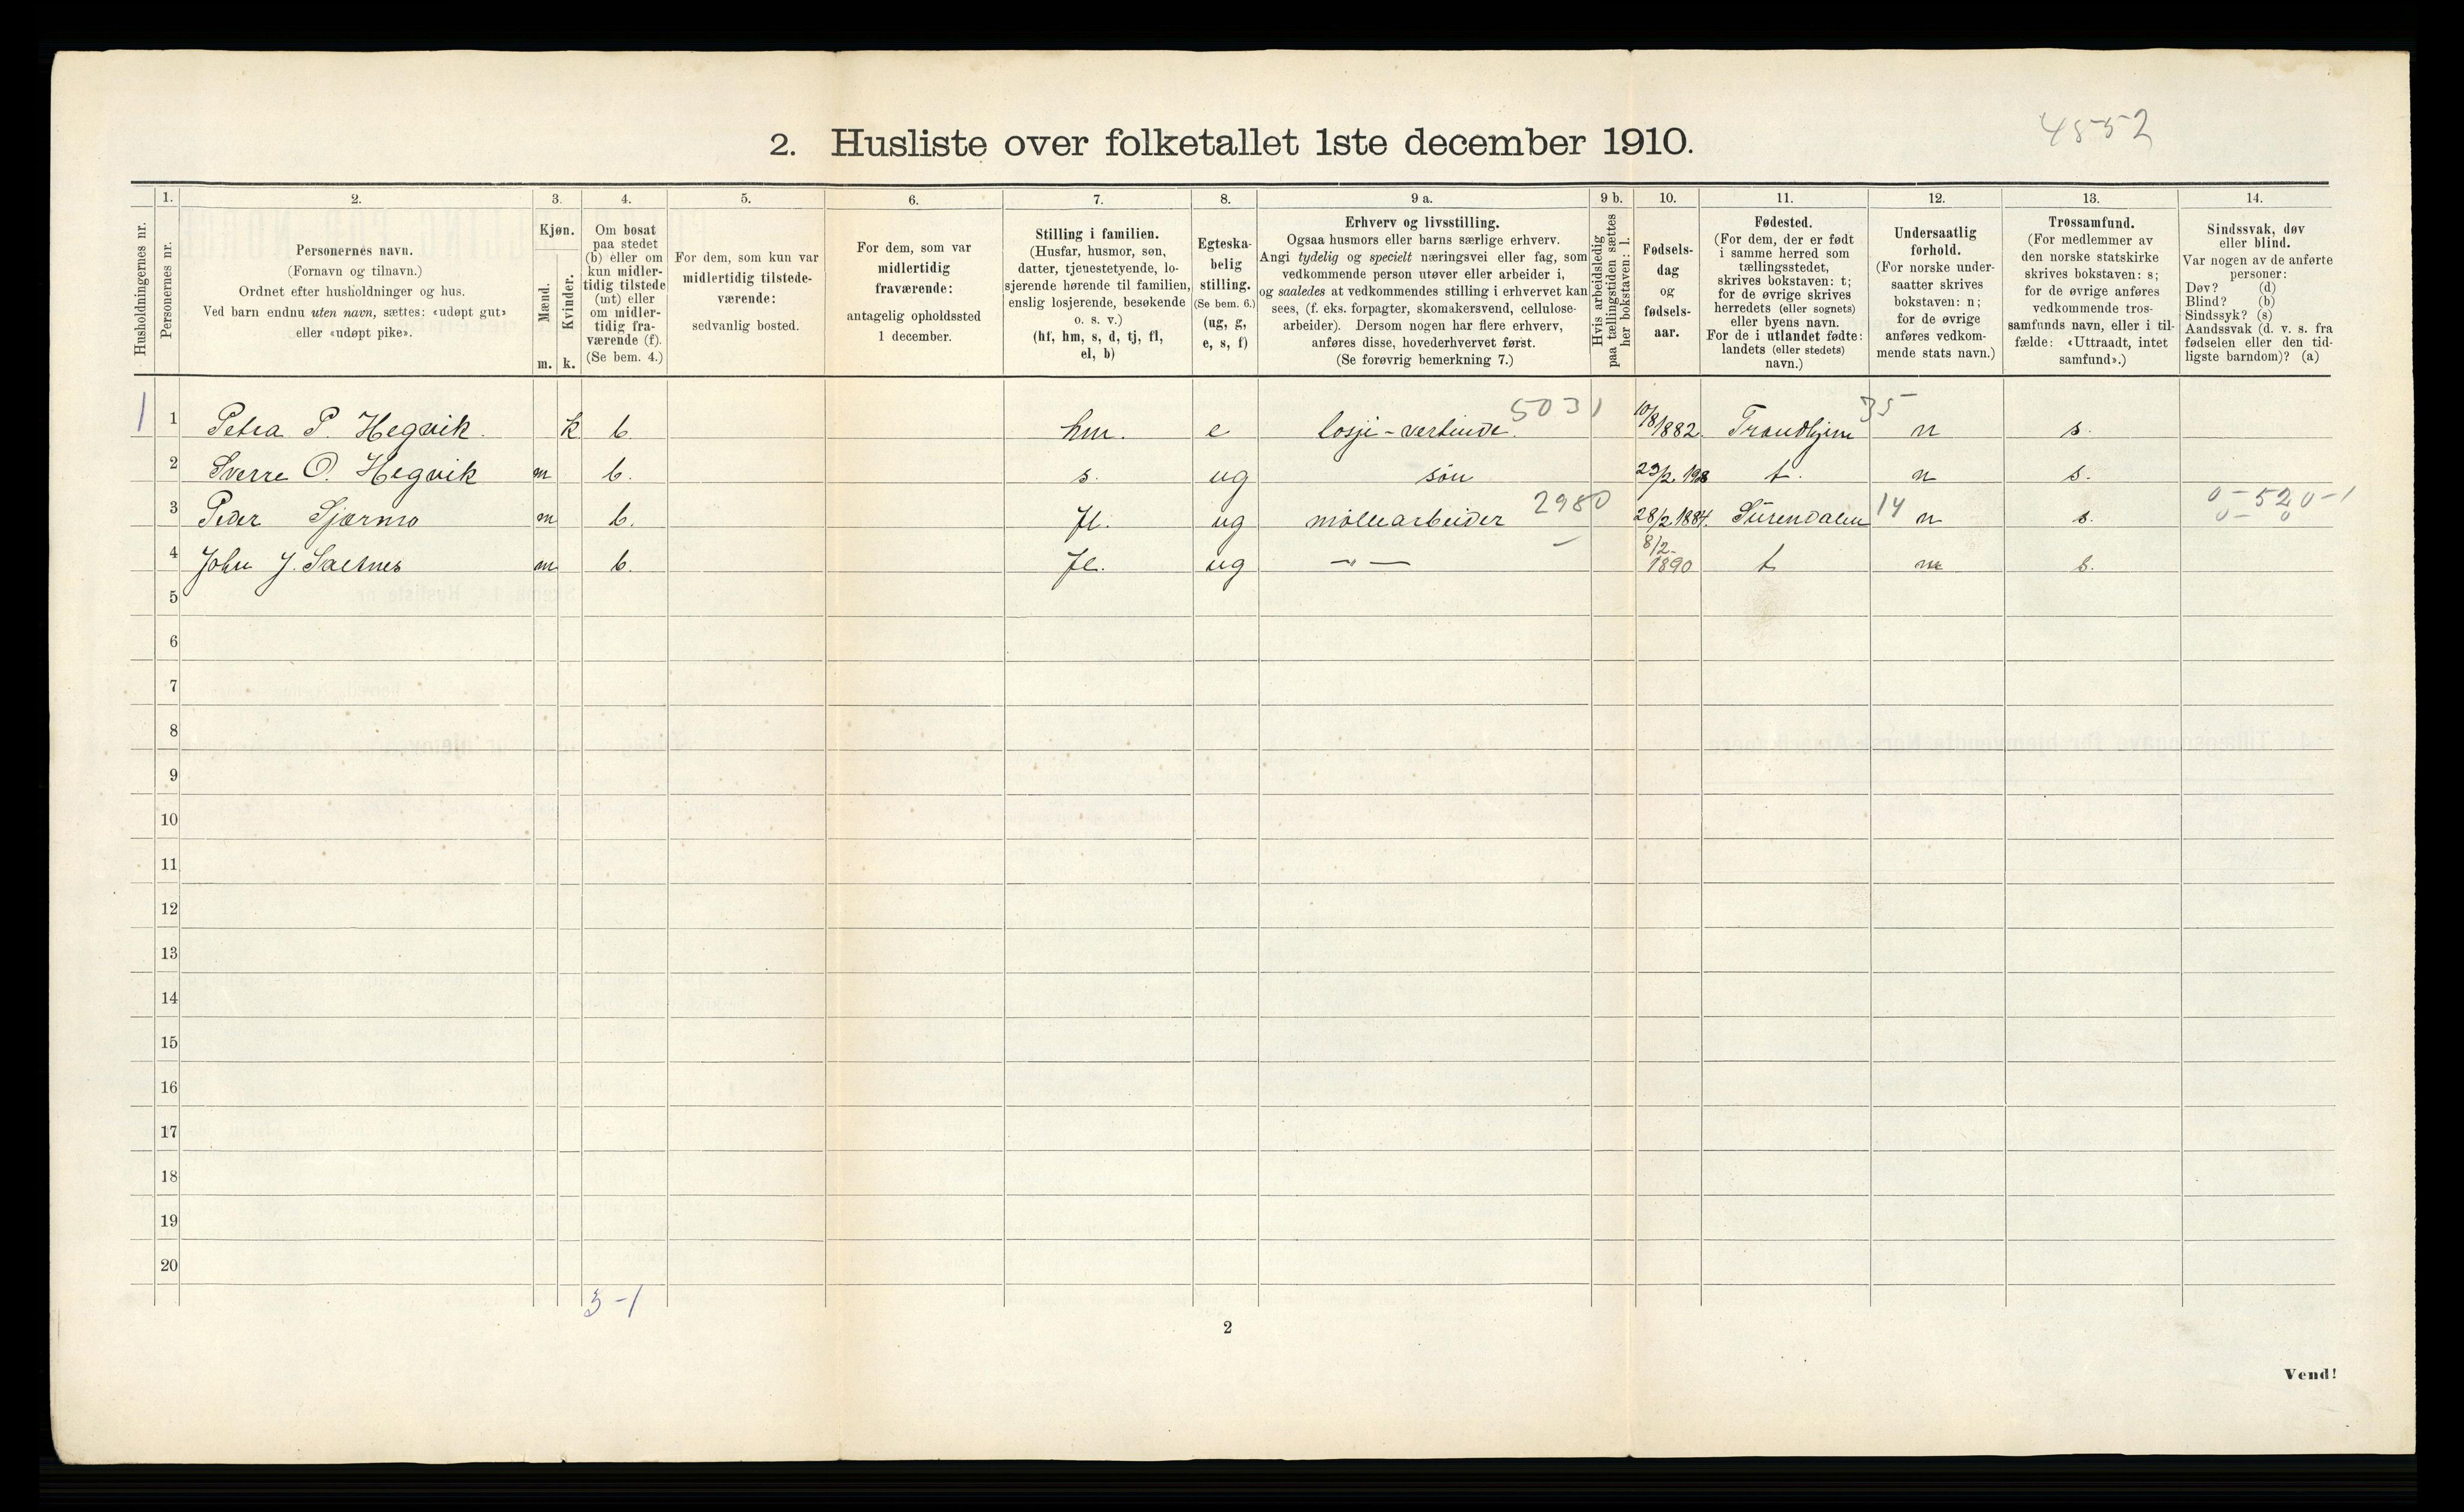 4552
2. Husliste over folketallet 1ste december 1910.
Husholdningernes nr.
1.
Personernes nr.
2.
Personernes navn.
(Fornavn og tilnavn.)
Ordnet efter husholdninger og hus.
Ved barn endnu uten navn, sættes: «udøpt gut»
eller «udøpt pike».
3.
Kjøn.
Mænd.
Kvinder.
m. k.
4.
Om bosat
paa stedet
(b) eller om
kun midler-
tidig tilstede
(mt) eller
om midler-
tidig fra-
værende (f).
(Se bem. 4.)
5.
For dem, som kun var
midlertidig tilstede-
værende:
sedvanlig bosted.
6.
For dem, som var
midlertidig
fraværende:
antagelig opholdssted
1 december.
7.
Stilling i familien.
(Husfar, husmor, søn,
datter, tjenestetyende, lo-
sjerende hørende til familien,
enslig losjerende, besøkende
o. s. v.)
(hf, hm, s, d, tj, fl,
el, b)
8.
Egteska-
belig
stilling.
(Se bem. 6.)
(ug, g,
e, s, f)
9 a.
Erhverv og livsstilling.
Ogsaa husmors eller barns særlige erhverv.
Angi tydelig og specielt næringsvei eller fag, som
vedkommende person utøver eller arbeider i,
og saaledes at vedkommendes stilling i erhvervet kan
sees, (f. eks. forpagter, skomakersvend, cellulose-
arbeider). Dersom nogen har flere erhverv,
anføres disse, hovederhvervet først.
(Se forøvrig bemerkning 7.)
9 b.
Hvis arbeidsledig
paa tællingstiden sættes
her bokstaven: l.
10.
Fødsels-
dag
og
fødsels-
aar.
11.
Fødested.
(For dem, der er født
i samme herred som
tællingsstedet,
skrives bokstaven: t;
for de øvrige skrives
herredets (eller sognets)
eller byens navn.
For de i utlandet fødte:
landets (eller stedets)
navn.)
12.
Undersaatlig
forhold.
(For norske under-
saatter skrives
bokstaven: n;
for de øvrige
anføres vedkom-
mende stats navn.)
13.
Trossamfund.
(For medlemmer av
den norske statskirke
skrives bokstaven: s;
for de øvrige anføres
vedkommende tros-
samfunds navn, eller i til-
fælde: «Uttraadt, intet
samfund».)
14.
Sindssvak, døv
eller blind.
Var nogen av de anførte
personer:
Døv? (d)
Blind? (b)
Sindssyk? (s)
Aandssvak (d. v. s. fra
fødselen eller den tid-
ligste barndom)? (a)
1 1 Petra P. Hegvik. k b. hm. e losji-vertinde. 5031 10/8 1882. Trondhjem 35 n s.
2 Sverre O. Hegvik m b. s. ug søn 23/2. 1908 t. n s.
3 Peder Sjærmo m b. fl. ug møllearbeider 2980 28/2 1884. Surendalen 14 n s. 0-520-1
0- 0
4 John J. Saltnes m b. fl. ug -"- — 8/2- 1890 t n s.
5
6
7
8
9
10
11
12
13
14
15
16
17
18
19
20
3-1
2
Vend!